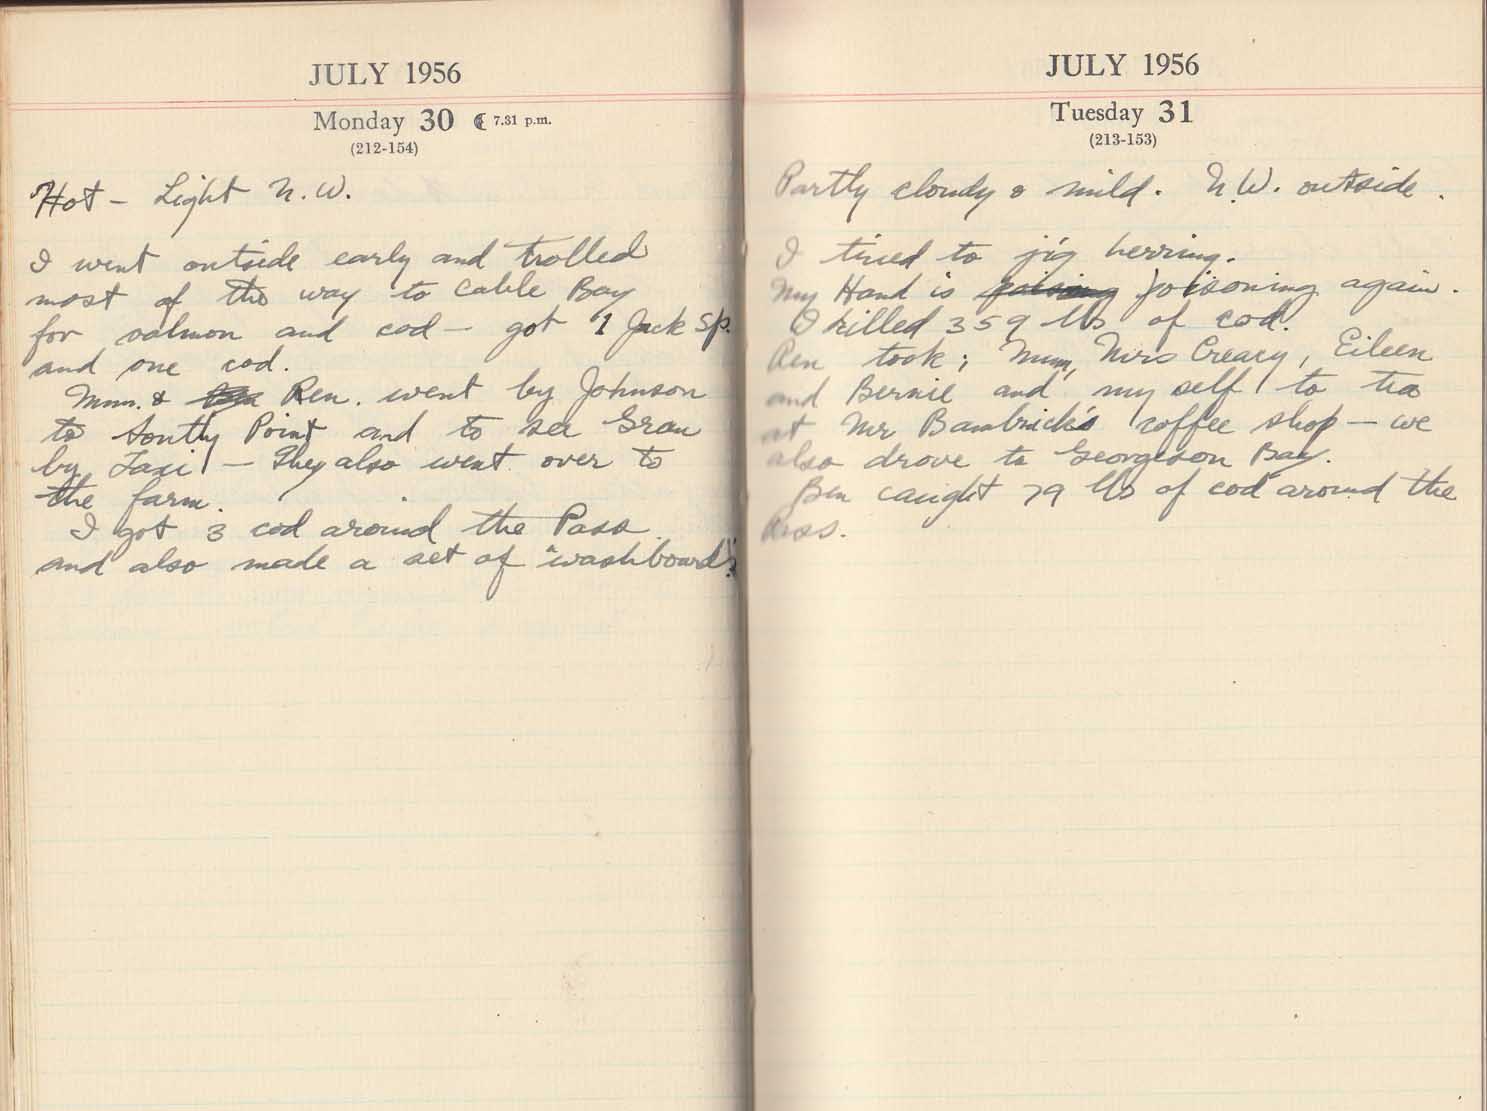 JULY 1956
Monday 30 ☾ 7.31 p.m.
(212-154)
Hot - Light N.W.
I went outside early and trolled
most of the way to Cable Bay
for salmon and cod - got 1 Jack Sp.
and one cod.
Mum. & Ren. went by Johnson
to Southy Point and to see Gran
by Taxi - They also went over to
the farm.
I got 3 cod around the Pass
and also made a set of "washboards".
JULY 1956
Tuesday 31
(213-153)
Partly cloudy & mild. N.W. outside.
I tried to jig herring.
My Hand is poisoning again.
I killed 359 lbs of cod.
Ren took; Mum, Mrs Creacy, Eileen
and Bernie and my self to tea
at Mr Bambrick's coffee shop - we
also drove to Georgeson Bay.
Ben caught 79 lbs of cod around the
Pass.